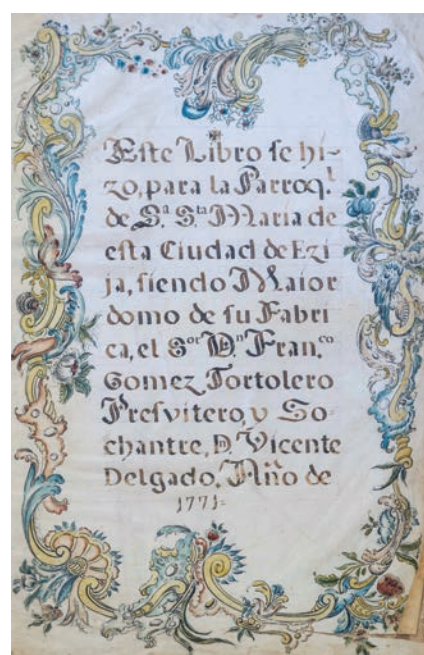 Este Libro se hi-
zo, para la Parroq.l
de S.a S.ta Maria de
esta Ciudad de Ezi
ja, siendo Maior
domo de su Fabri
ca, el S.or D.n Fran.co
Gomez Tortolero
Presvitero, y So-
chantre, D. Vicente
Delgado, Año de
1771=